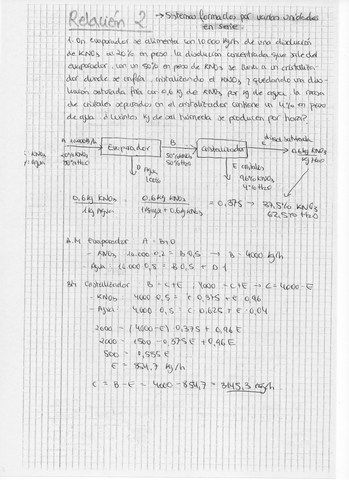 Relación 2 → Sistemas formados por varias unidades
en serie.
1. Un evaporador se alimenta con 10.000 Kg/h de una disolución
de KNO3 al 20% en peso. La disolución concentrada que sale del
evaporador, con un 50% en peso de KNO3 se lleva a un cristaliza-
dor donde se enfría, cristalizando el KNO3 y quedando una diso-
lución saturada fría con 0,6 Kg de KNO3 por Kg de agua. La masa
de cristales separados en el cristalizador contiene un 4% en peso
de agua. ¿Cuántos Kg de sal húmeda se producen por hora?
A 10.000 Kg/h
Evaporador
B
Cristalizador
disol saturada
20% KNO3
80% H2O
50% KNO3
50% H2O
0,6 Kg KNO3
Kg H2O
D Agua
100%
E cristales
96% KNO3
4% H2O
0,6 Kg KNO3
1 Kg agua
0,6 Kg KNO3
1 Kg agua + 0,6 Kg KNO3
= 0,375 → 37,5% KNO3
62,5% H2O
B.M. Evaporador A = B+D
- KNO3 10.000·0,2 = B·0,5 → B = 4000 Kg/h
- Agua 10.000·0,8 = B·0,5 + D·1
BM Cristalizador B = C+E , 4000 = C+E → C = 4000-E
- KNO3 4000·0,5 = C·0,375 + E·0,96
- Agua 4000·0,5 = C·0,625 + E·0,04
2000 = (4000-E)·0,375 + 0,96E
2000 = 1500 - 0,375E + 0,96E
500 = 0,585E
E = 854,7 Kg/h
C = B-E = 4000 - 854,7 = 3145,3 Kg/h